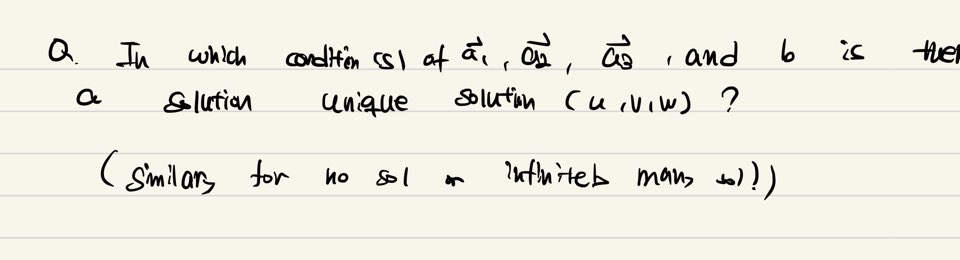 Q. In which condition(s) of a⃗₁, a⃗₂, a⃗₃, and b is ther
a solution unique solution (u, v, w) ?
(Similarly for no sol or infinitely many sol))